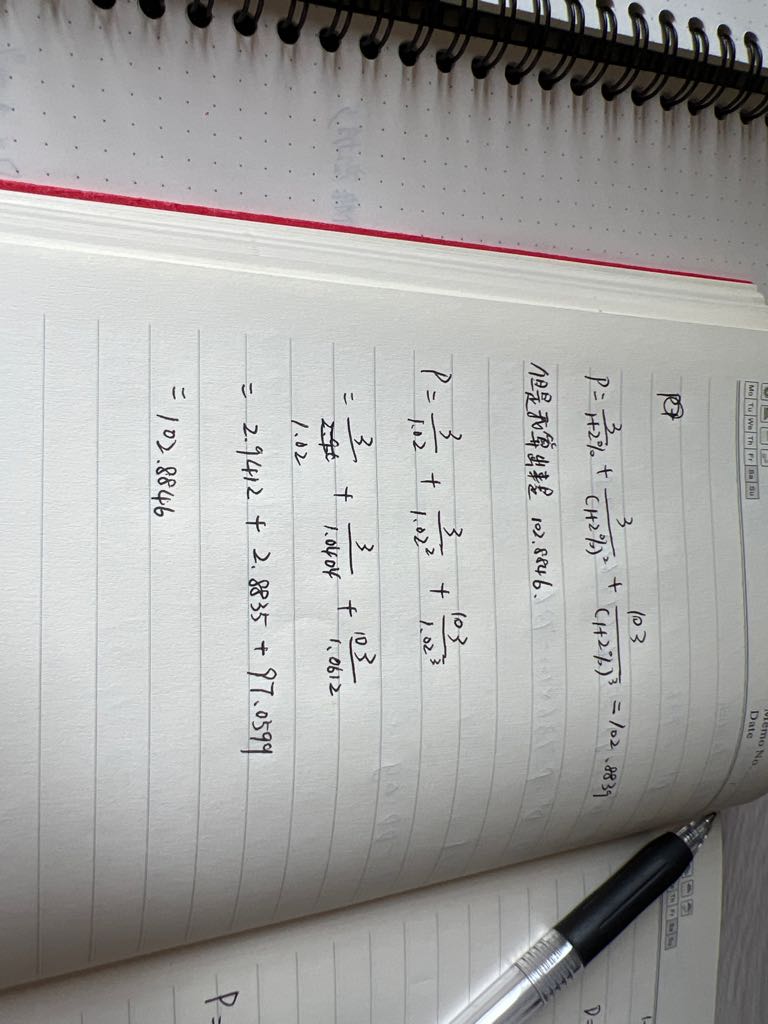 Memo No.
Date
Mo Tu We Th Fr Sa Su
P = 3/(1+2%) + 3/(1+2%)² + 103/(1+2%)³ = 102.8839
但是我算出来是 102.8846.
P = 3/1.02 + 3/1.02² + 103/1.02³
= 3/1.02 + 3/1.0404 + 103/1.0612
= 2.9412 + 2.8835 + 97.0599
= 102.8846
Th Fr Sa Su
D=
P=